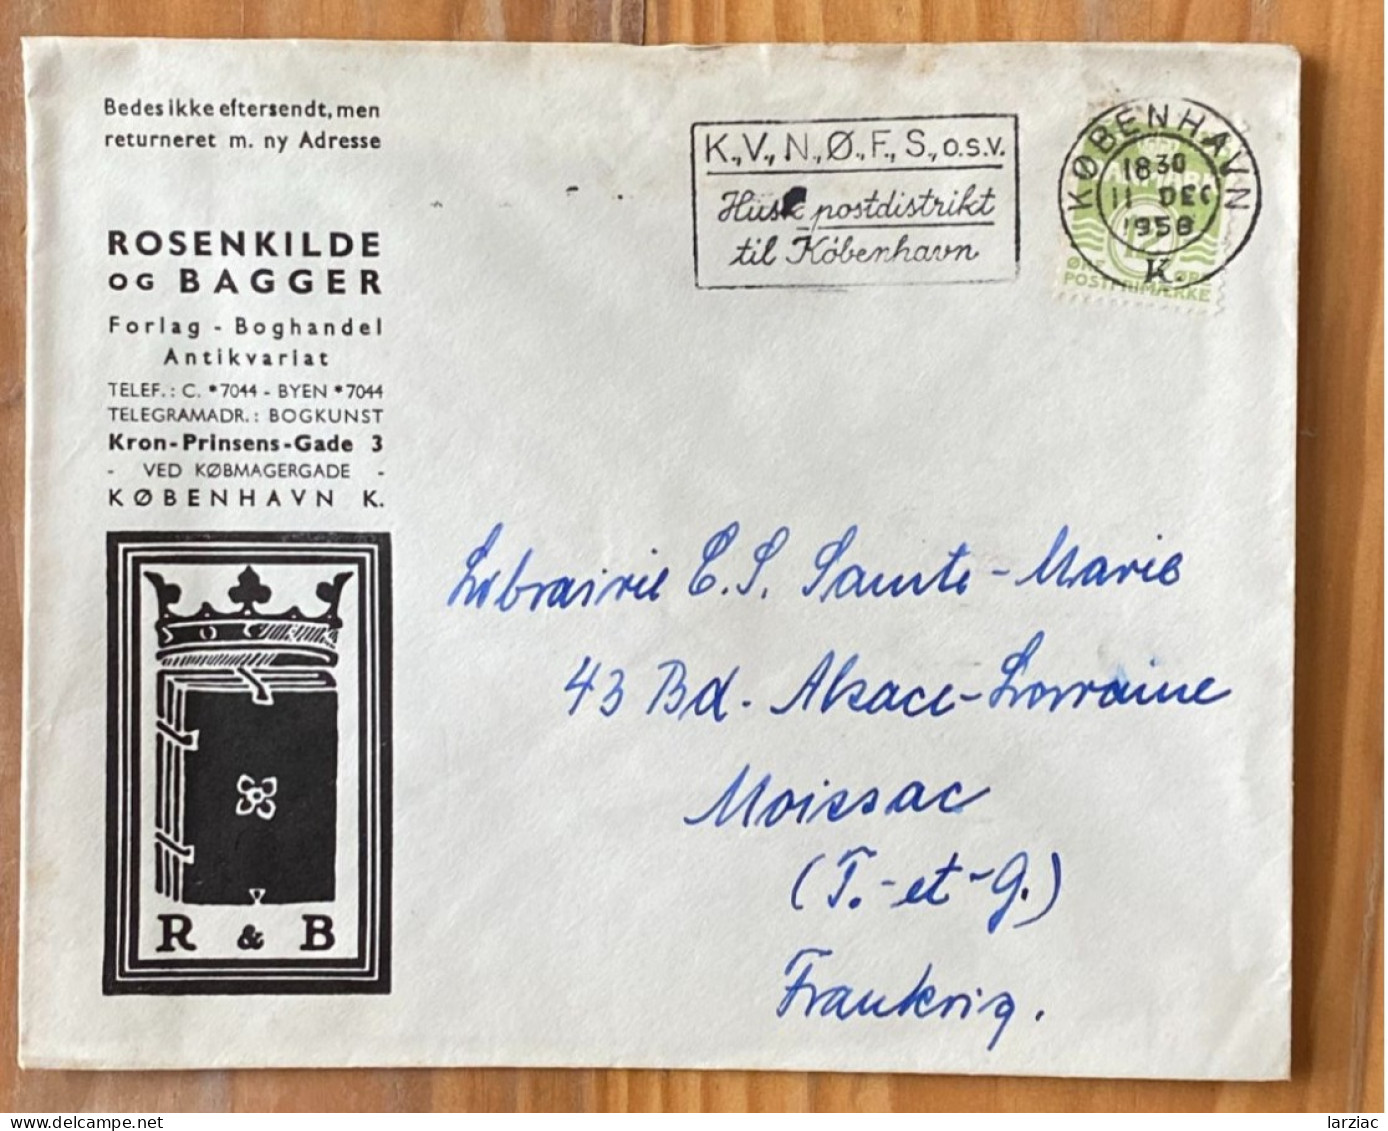 Bedes ikke eftersendt, men
returneret m. ny Adresse
ROSENKILDE
OG BAGGER
Forlag - Boghandel
Antikvariat
TELEF.: C. *7044 - BYEN *7044
TELEGRAMADR.: BOGKUNST
Kron-Prinsens-Gade 3
- VED KØBMAGERGADE -
KØBENHAVN K.
R & B
K., V., N., Ø., F., S., o.s.v.
Husk postdistrikt
til København
KØBENHAVN
18 30
11 DEC
1958
K.
DANMARK
12
ØRE
POSTFRIMÆRKE
Librairie E. S. Sainte-Marie
43 Bd. Alsace-Lorraine
Moissac
(T.-et-G.)
Frankrig.
larziac
delcampe.net